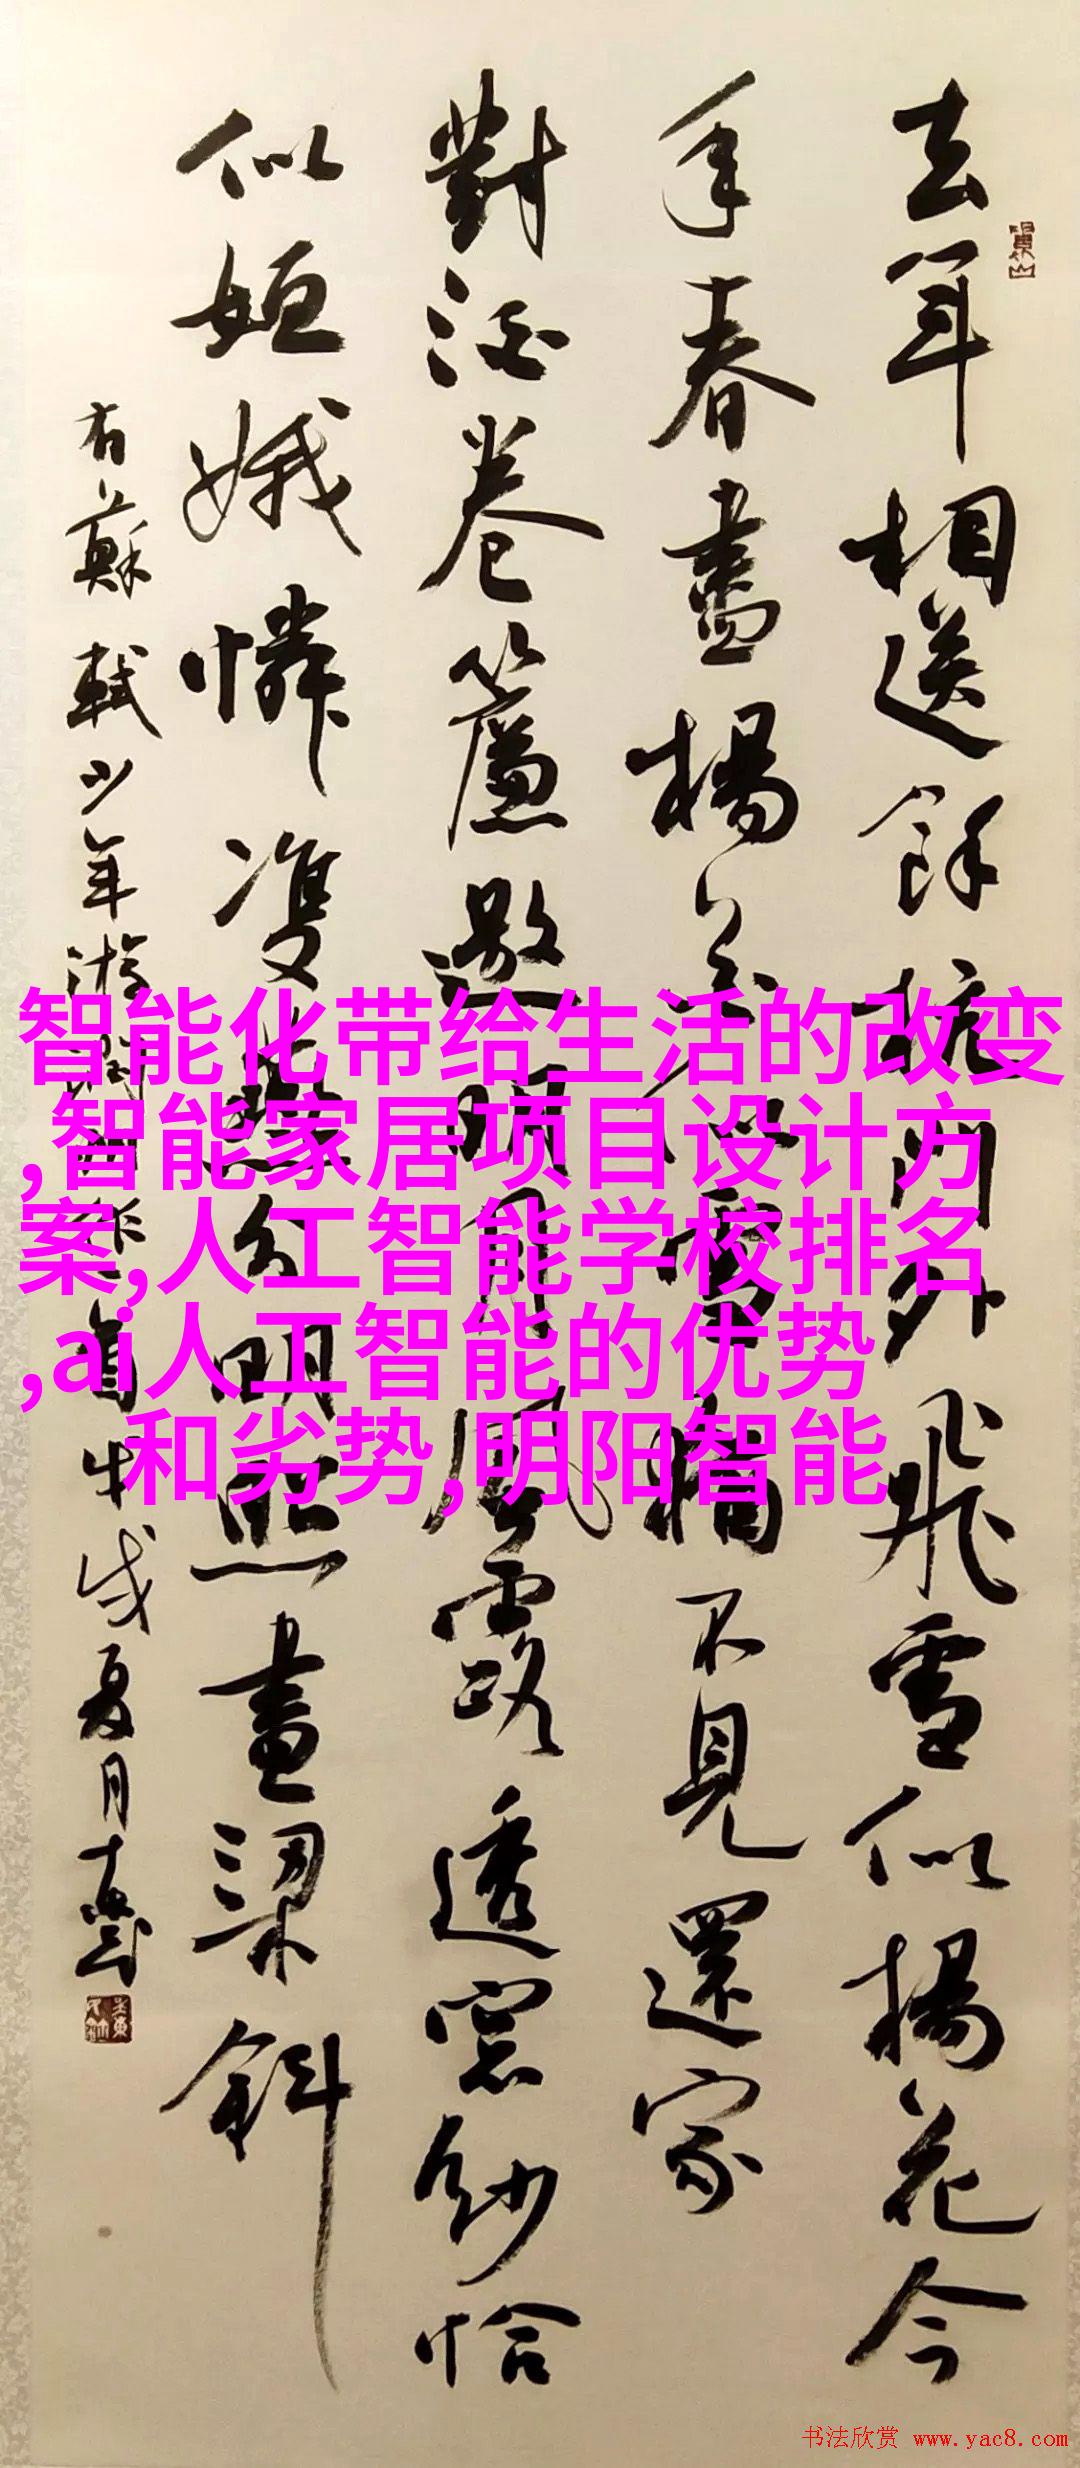 去年相送餘杭門外飛雪似楊花今
年春盡楊花似雪猶不見還家
對酒卷簾邀明月風露透窗紗恰
似姮娥憐雙燕分明照畫梁斜
右蘇軾少年游潤州作 夏月
智能化带给生活的改变
,智能家居项目设计方
案,人工智能学校排名
,ai人工智能的优势
和劣势,明阳智能
书法欣赏 www.yac8.com